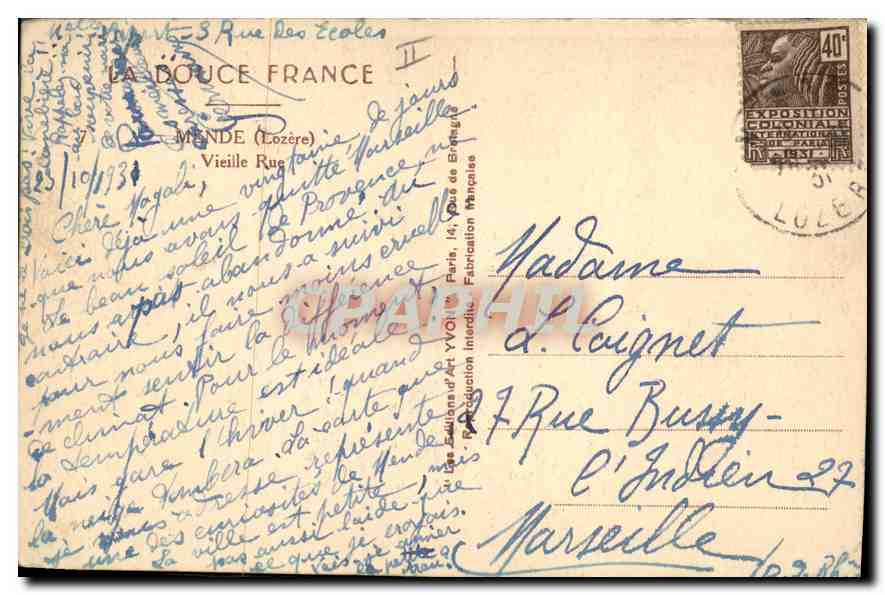 3 Rue des Ecoles
II
LA DOUCE FRANCE
MENDE (Lozère)
Vieille Rue
23/10/1931
Chère Magali,
Voici déjà une vingtaine de jours
que nous avons quitté Marseille
Le beau soleil de Provence ne
nous a pas abandonné, au
contraire, il nous a suivi
pour nous faire moins cruelle
-ment sentir la différence
de climat. Pour le moment,
la température est idéale
Mais gare l'hiver! quand
la neige tombera. La carte que
je vous adresse représente
une des curiosités de Mende
La ville est petite, mais
pas aussi laide que
ce que je croyais.
Les Editions d'Art YVON Paris, 14, Rue de Bretagne
Reproduction Interdite Fabrication Française
CPAPHIL
40c
POSTES
EXPOSITION
COLONIALE
INTERNATIONALE
DE PARIS
1931
LOZERE
Madame
L. Coignet
27 Rue Bussy-
l'Indien 27
Marseille